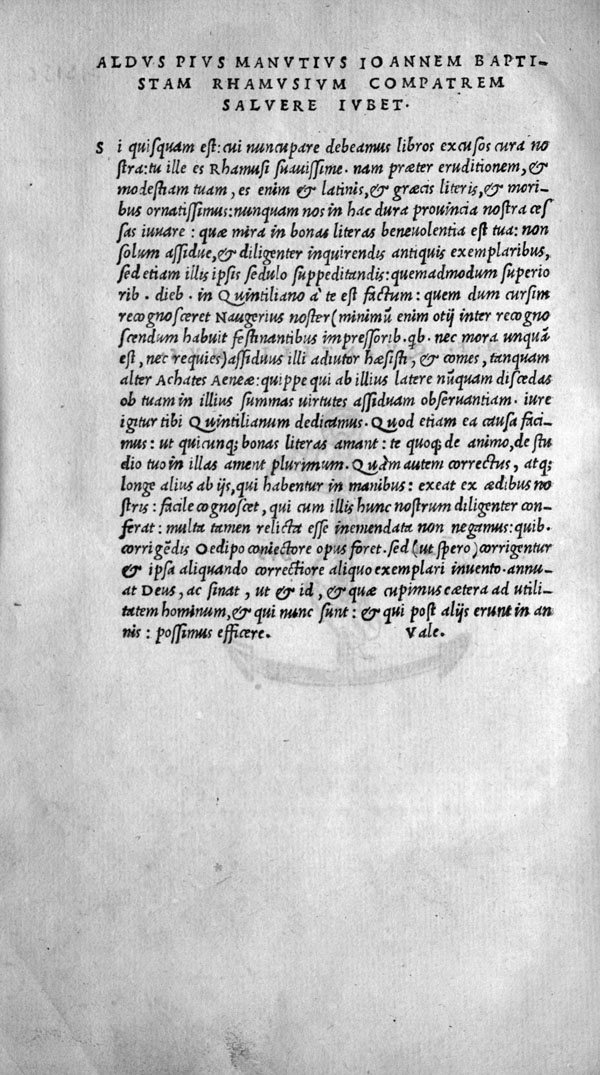 ALDVS PIVS MANVTIVS IOANNEM BAPTI-
STAM RHAMVSIVM COMPATREM
SALVERE IVBET.
S i quisquam est: cui nuncupare debeamus libros excusos cura no
stra: tu ille es Rhamusi suauissime. nam præter eruditionem, &
modestiam tuam, es enim & latinis, & græcis literis, & mori-
bus ornatissimus: nunquam nos in hac dura prouincia nostra ces
sas iuuare: quæ mira in bonas literas beneuolentia est tua: non
solum assidue, & diligenter inquirendis antiquis exemplaribus,
sed etiam illis ipsis sedulo suppeditandis: quemadmodum superio
rib. dieb. in Quintiliano à te est factum: quem dum cursim
recognosceret Naugerius noster (minimũ enim otij inter recogno
scendum habuit festinantibus impressorib. qb. nec mora unquã
est, nec requies) assiduus illi adiutor hæsisti, & comes, tanquam
alter Achates Aeneæ: quippe qui ab illius latere nũquam discedas
ob tuam in illius summas uirtutes assiduam obseruantiam. iure
igitur tibi Quintilianum dedicamus. Quod etiam ea causa faci-
mus: ut quicunq; bonas literas amant: te quoq; de animo, de stu
dio tuo in illas ament plurimum. Quàm autem correctus, atq;
longe alius ab ijs, qui habentur in manibus: exeat ex ædibus no
stris: facile cognoscet, qui cum illis hunc nostrum diligenter con-
ferat: multa tamen relicta esse inemendata non negamus: quib.
corrigẽdis Oedipo coniectore opus foret. sed (ut spero) corrigentur
& ipsa aliquando correctiore aliquo exemplari inuento. annu-
at Deus, ac sinat, ut & id, & quæ cupimus cætera ad utili-
tatem hominum, & qui nunc sunt: & qui post alijs erunt in an
nis: possimus efficere. Vale.